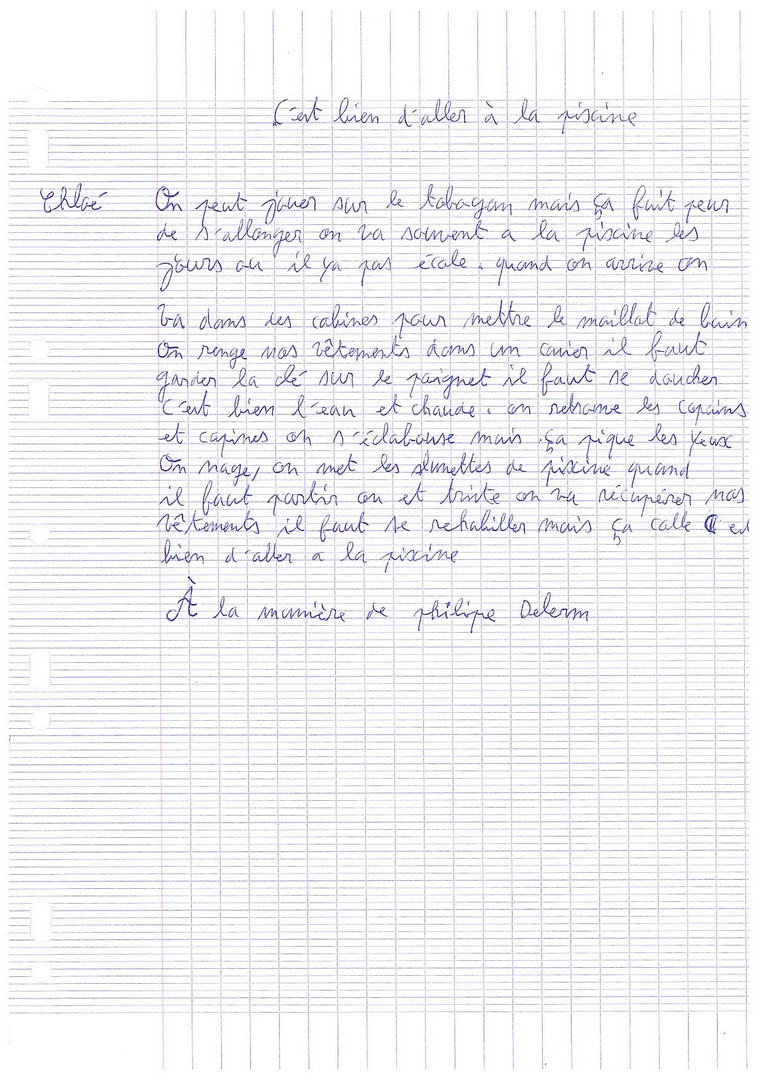 C'est bien d'aller à la piscine
Chloé On peut jouer sur le tobogan mais ça fait peur
de s'allonger on va souvent a la piscine les
jours ou il ya pas école. quand on arrive on
va dans des cabines pour mettre le maillot de bain
On range nos vêtements dans un casier il faut
garder la clé sur le poignet il faut se doucher
c'est bien l'eau et chaude. on retrouve les copains
et copines on s'éclabouse mais ça pique les yeux
On nage, on met les lunettes de piscine quand
il faut partir on et triste on va récupérer nos
vêtements il faut se rehabiller mais ça colle C'est
bien d'aller a la piscine
À la manière de philipe Delerm